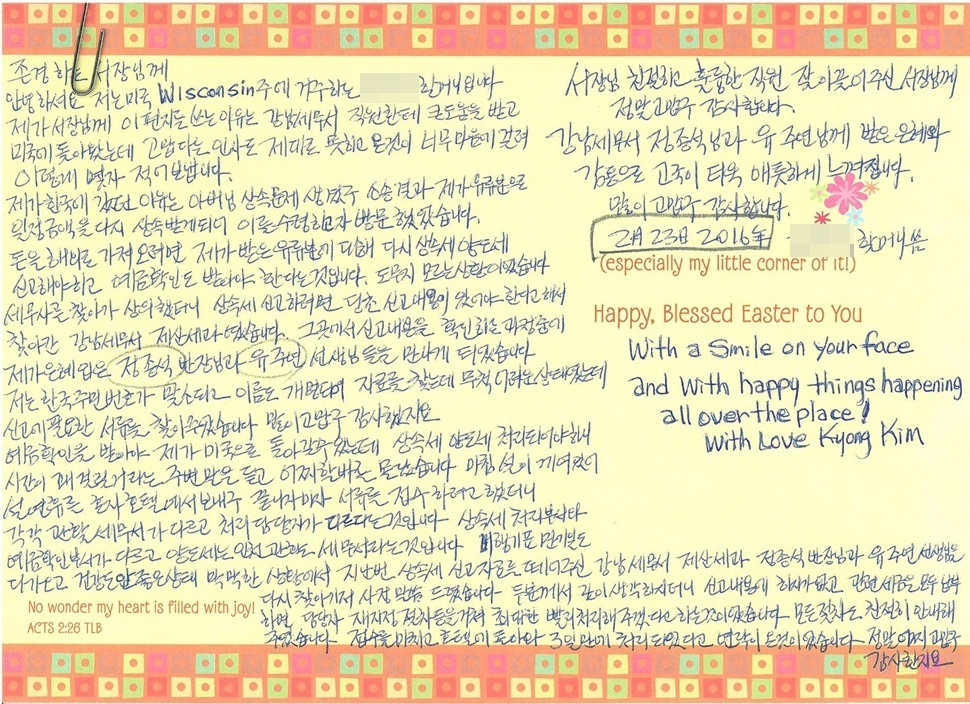 존경 하는 서장님께
안녕하셔요 저는 미국 Wisconsin주에 거주하는 할머니입니다
제가 서장님께 이 편지를 쓰는 이유는 강남세무서 직원한테 큰도움을 받고
미국에 돌아왔는데 고맙다는 인사도 제대로 못하고 온것이 너무 마음에 걸려
이렇게 몇자 적어 보냅니다.
제가 한국에 갔던 이유는 아버님 상속문제 생겼고 소송결과 제가 유류분으로
일정금액을 다시 상속받게되어 이를 수령하고자 방문했었습니다.
돈을 해외로 가져오려면 제가 받은 유류분에 대해 다시 상속세 양도세
신고해야하고 예금확인도 받아야 한다는것입니다. 도무지 모르는 상황이었습니다
세무사를 찾아가 상의했더니 상속세 신고하려면 당초 신고내용이 있어야 한다고해서
찾아간 강남세무서 재산세과 였습니다. 그곳에서 신고내용을 확인하는 과정중에
제가 은혜입은 정준석 반장님과 유주연 선생님들을 만나게 되었습니다
저는 한국주민번호가 말소되고 이름도 개명되어 자료를 찾는데 무척 어려운 상태였는데
신고에 필요한 서류를 찾아주었습니다 많이 고맙구 감사했지요
예금확인을 받아야 제가 미국으로 돌아갈수 있는데 상속세 양도세 처리되어야하니
시간이 꽤 걸릴거라는 주변 말을 듣고 어찌할바를 몰랐습니다 마침 설이 끼여있어
설연휴를 혼자 호텔에서 보내구 끝나자마자 서류를 접수하려고 했더니
각각 관할 세무서가 다르고 처리 담당자가 다르다는것입니다 상속세 처리부서와
예금확인부서가 다르고 양도세는 인천 관할 세무서라는것입니다 비행기표 만기일도
다가오고 건강도 안좋은상태 막막한 상황에서 지난번 상속세 신고자료를 떼어주신 강남세무서 재산세과 정준석 반장님과 유주연 선생님을
다시 찾아가서 사정 말씀드렸습니다 두분께서 같이 생각하시더니 신고내용에 하자가없고 관련 세금을 모두 납부
하면, 담당자 재지정 절차등을거쳐 최대한 빨리처리해 주겠다고 하는것이었습니다 모든절차도 친절히 안내해
주었습니다 접수를 마치고 호텔에 돌아와 3일만에 처리되었다고 연락이 온것이었습니다 정말 어찌 고맙구
감사한지요
No wonder my heart is filled with joy!
ACTS 2:26 TLB
서장님 친절하고 훌륭한 직원 잘 이끌어주신 서장님께
정말 고맙구 감사합니다.
강남세무서 정준석님과 유주연님께 받은 은혜와
감동으로 고국이 더욱 애틋하게 느껴집니다.
많이 고맙구 감사합니다.
2월 23일 2016年 할머니 씀
(especially my little corner of it!)
Happy, Blessed Easter to You
With a Smile on your face
and with happy things happening
all over the place!
With Love Kyong Kim